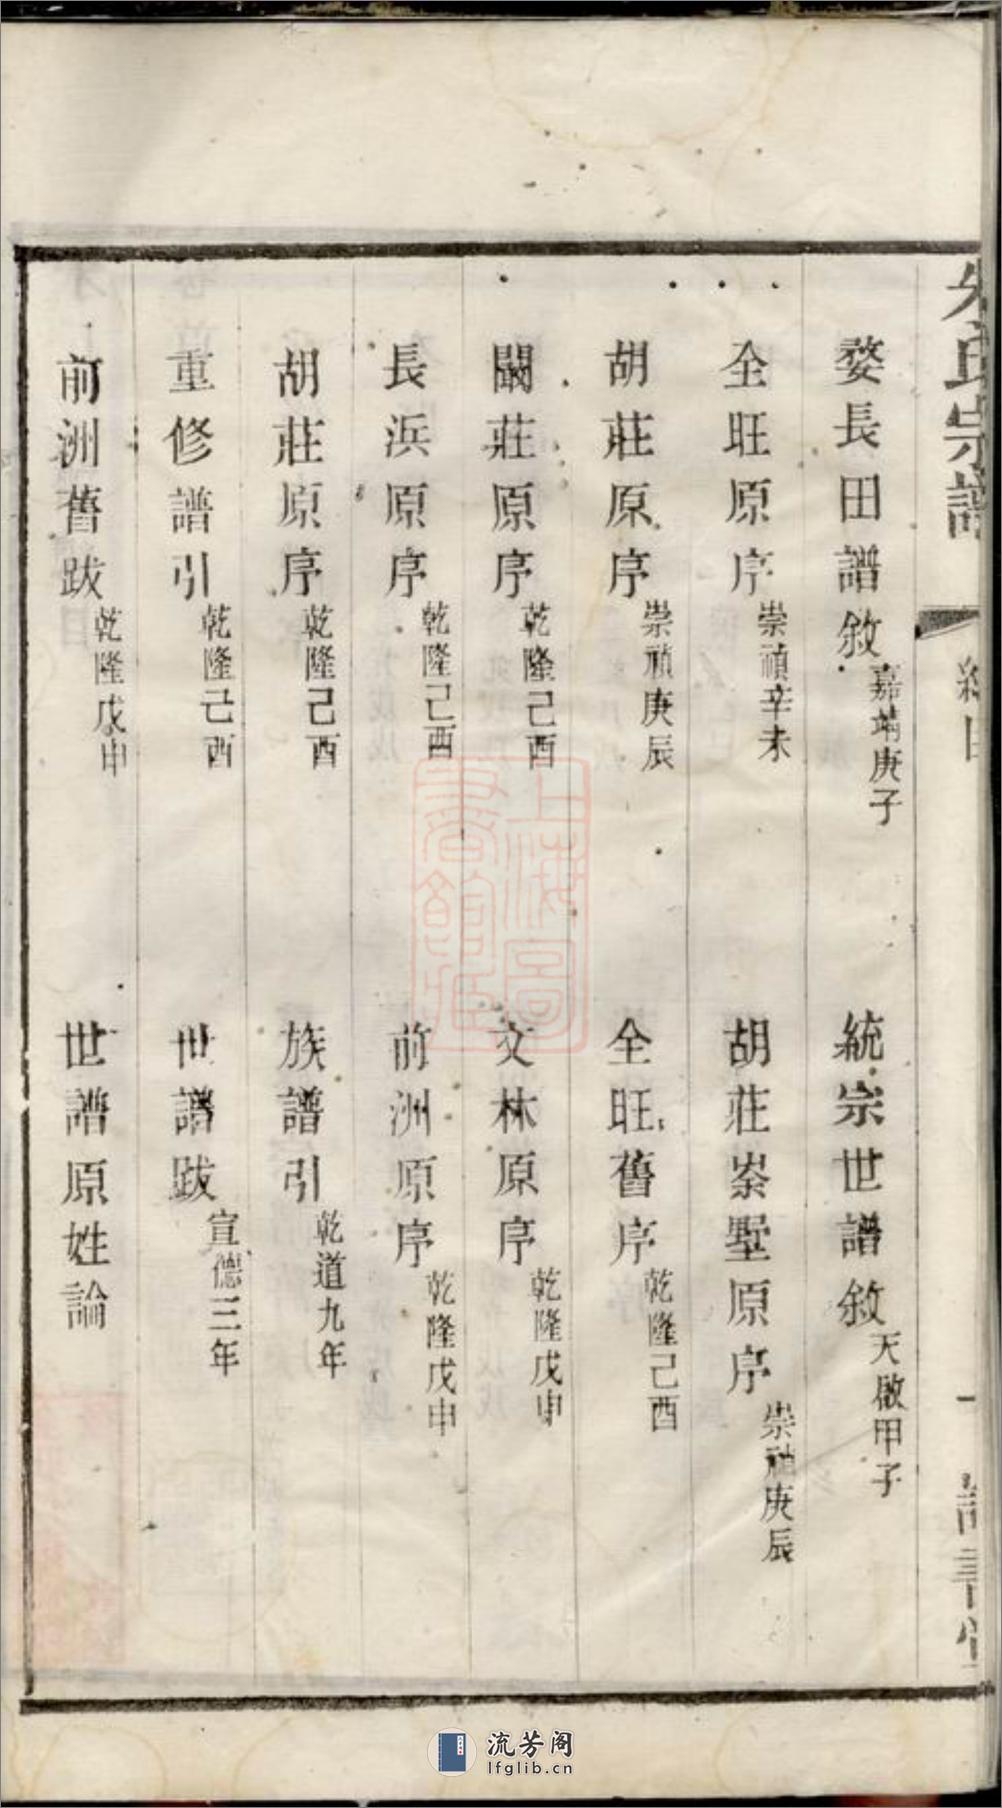 朱氏宗譜
總目
一
詩書堂
婺長田譜敘 嘉靖庚子
統宗世譜敘 天啟甲子
全旺原序 崇禎辛未
胡莊崟墅原序 崇禎庚辰
胡莊原序 崇禎庚辰
全旺舊序 乾隆己酉
闞莊原序 乾隆己酉
文林原序 乾隆戊申
長浜原序 乾隆己酉
前洲原序 乾隆戊申
胡莊原序 乾隆己酉
族譜引 乾道九年
重修譜引 乾隆己酉
世譜跋 宣德三年
前洲舊跋 乾隆戊申
世譜原姓論
上海圖書館藏
流芳阁
lfglib.cn